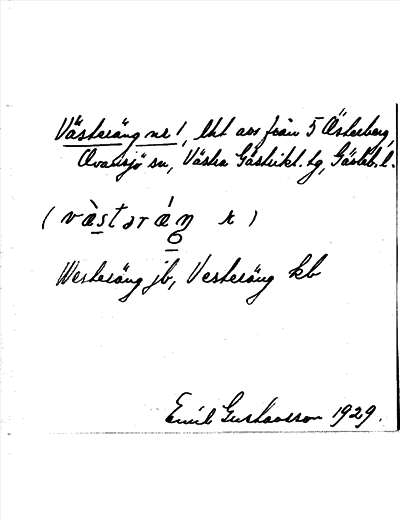 Västeräng nr 1, lht avs från 5 Österberg,
Ovansjö sn, Västra Gästrikl. tg, Gävleb. l.
(västəräŋ r)
Westeräng jb, Vesteräng kb
Emil Gustavsson 1929.